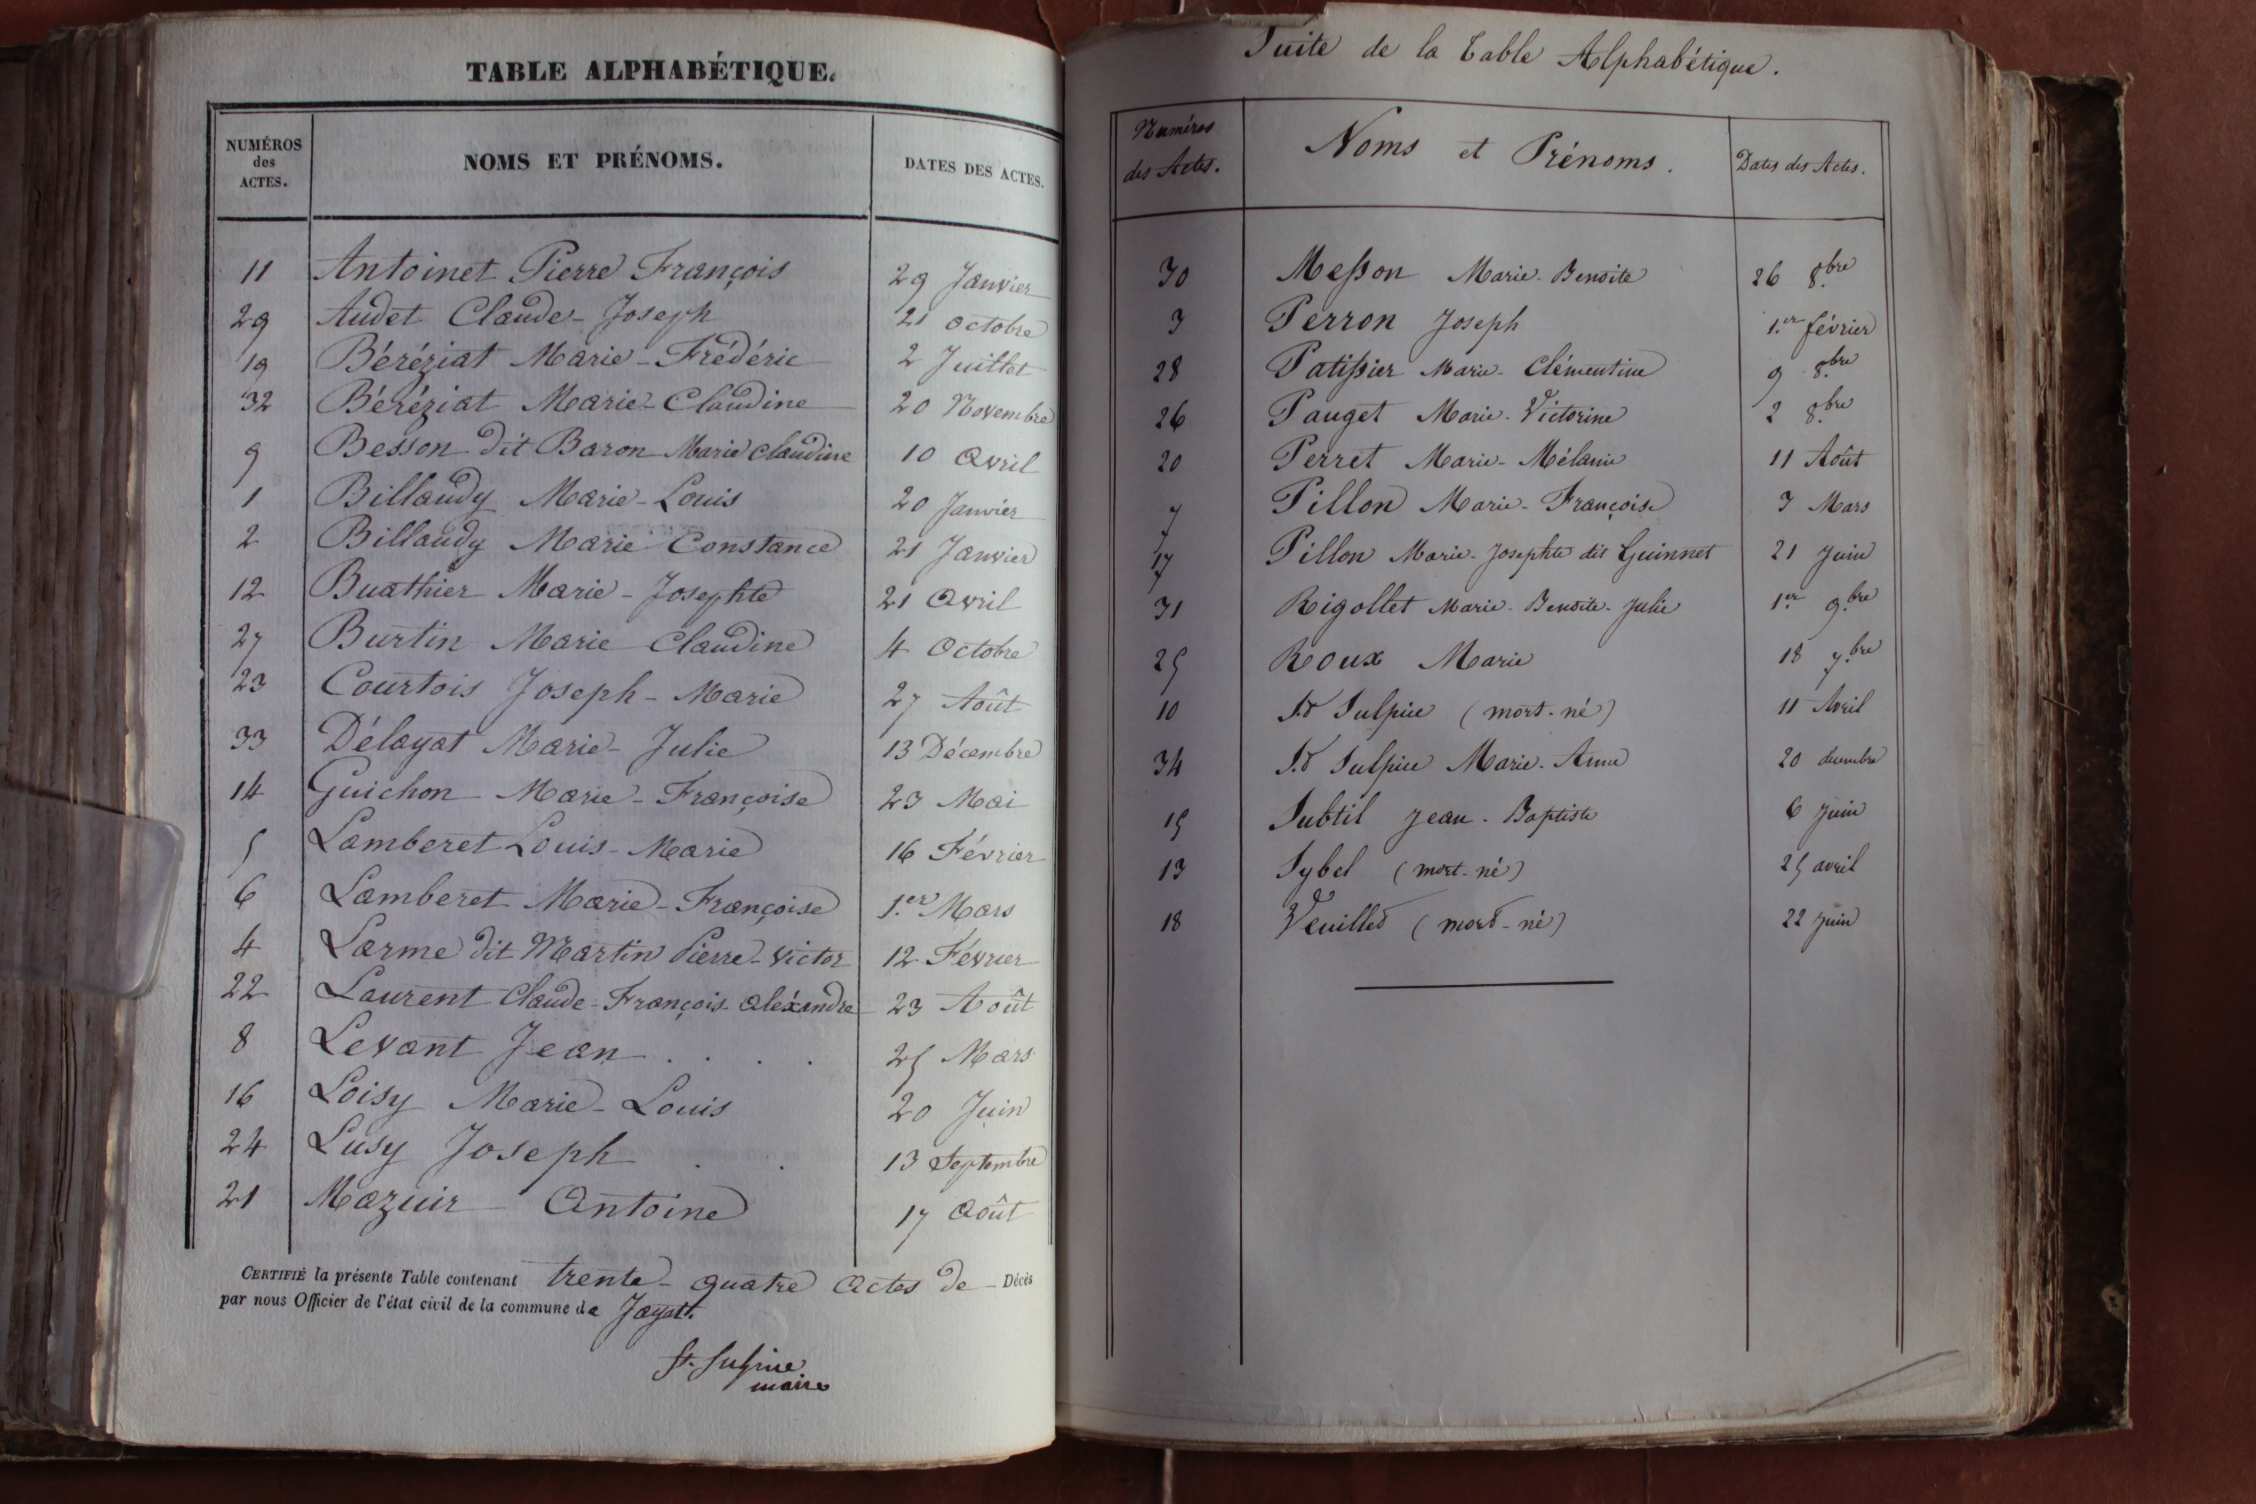 TABLE ALPHABÉTIQUE.
NUMÉROS des ACTES. NOMS ET PRÉNOMS. DATES DES ACTES.
11 Antoinet Pierre François 29 Janvier
29 Audet Claude-Joseph 21 octobre
19 Béréziat Marie-Frédéric 2 Juillet
32 Béréziat Marie-Claudine 20 Novembre
9 Besson dit Baron Marie Claudine 10 Avril
1 Billaudy Marie-Louis 20 Janvier
2 Billaudy Marie Constance 21 Janvier
12 Buathier Marie-Josephte 21 Avril
27 Burtin Marie Claudine 4 Octobre
23 Courtois Joseph-Marie 27 Août
33 Délayat Marie-Julie 13 Décembre
14 Guichon Marie-Françoise 23 Mai
5 Lamberet Louis-Marie 16 Février
6 Lamberet Marie-Françoise 1.er Mars
4 Larme dit Martin Pierre-Victor 12 Février
22 Laurent Claude-François-Aléxandre 23 Août
8 Levant Jean . . . . 25 Mars
16 Loisy Marie-Louis 20 Juin
24 Lusy Joseph . . 13 Septembre
21 Mazuir Antoine 17 Août
CERTIFIÉ la présente Table contenant trente-quatre Actes de Décès
par nous Officier de l'état civil de la commune de Jayat.
St. Sulpice
maire
Suite de la Table Alphabétique.
Numéros des Actes. Noms et Prénoms. Dates des Actes.
30 Messon Marie-Benoite 26 8.bre
3 Perron Joseph 1.er février
28 Patissier Marie-Clémentine 9 8.bre
26 Pauget Marie-Victorine 2 8.bre
20 Perret Marie-Mélanie 11 Août
7 Pillon Marie-Françoise 3 Mars
17 Pillon Marie-Josephte dit Guinnet 21 Juin
31 Rigollet Marie-Benoite-Julie 1er 9.bre
25 Roux Marie 18 7.bre
10 S.t Sulpice (mort-né) 11 Avril
34 S.t Sulpice Marie-Anne 20 decembre
15 Subtil Jean-Baptiste 6 Juin
13 Sybel (mort-né) 25 avril
18 Veuillet (mort-né) 22 Juin